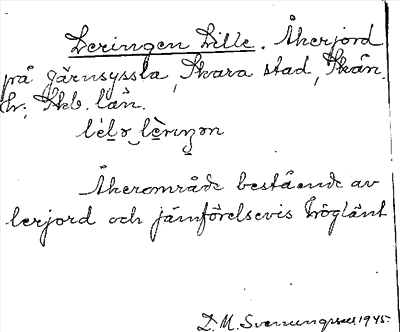 Leringen Lille. Åkerjord
på Järnsyssla, Skara stad, Skån.
hr; Skb. län.
Åkerområde bestående av
lerjord och jämförelsevis höglänt
D. M. Svenungsson 1945.